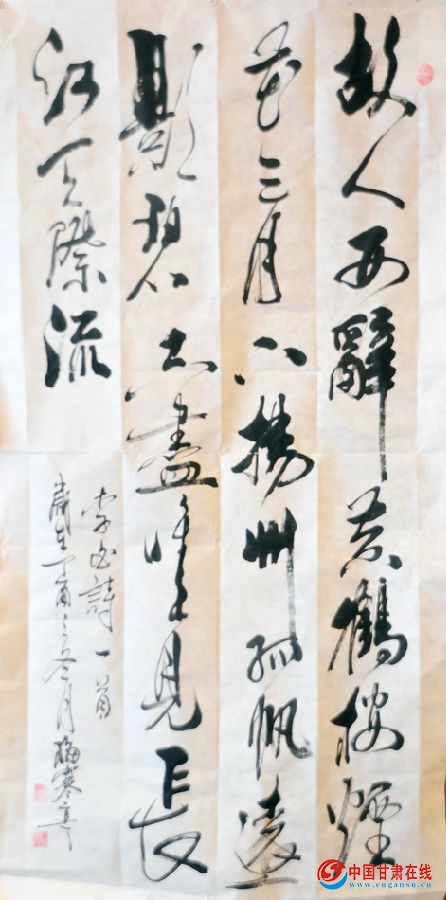 故人西辭黄鶴楼煙
花三月下揚州孤帆遠
影碧空盡唯見長
江天際流
李白詩一首
歲在丁酉之冬月
中国甘肃在线
www.cngansu.cn